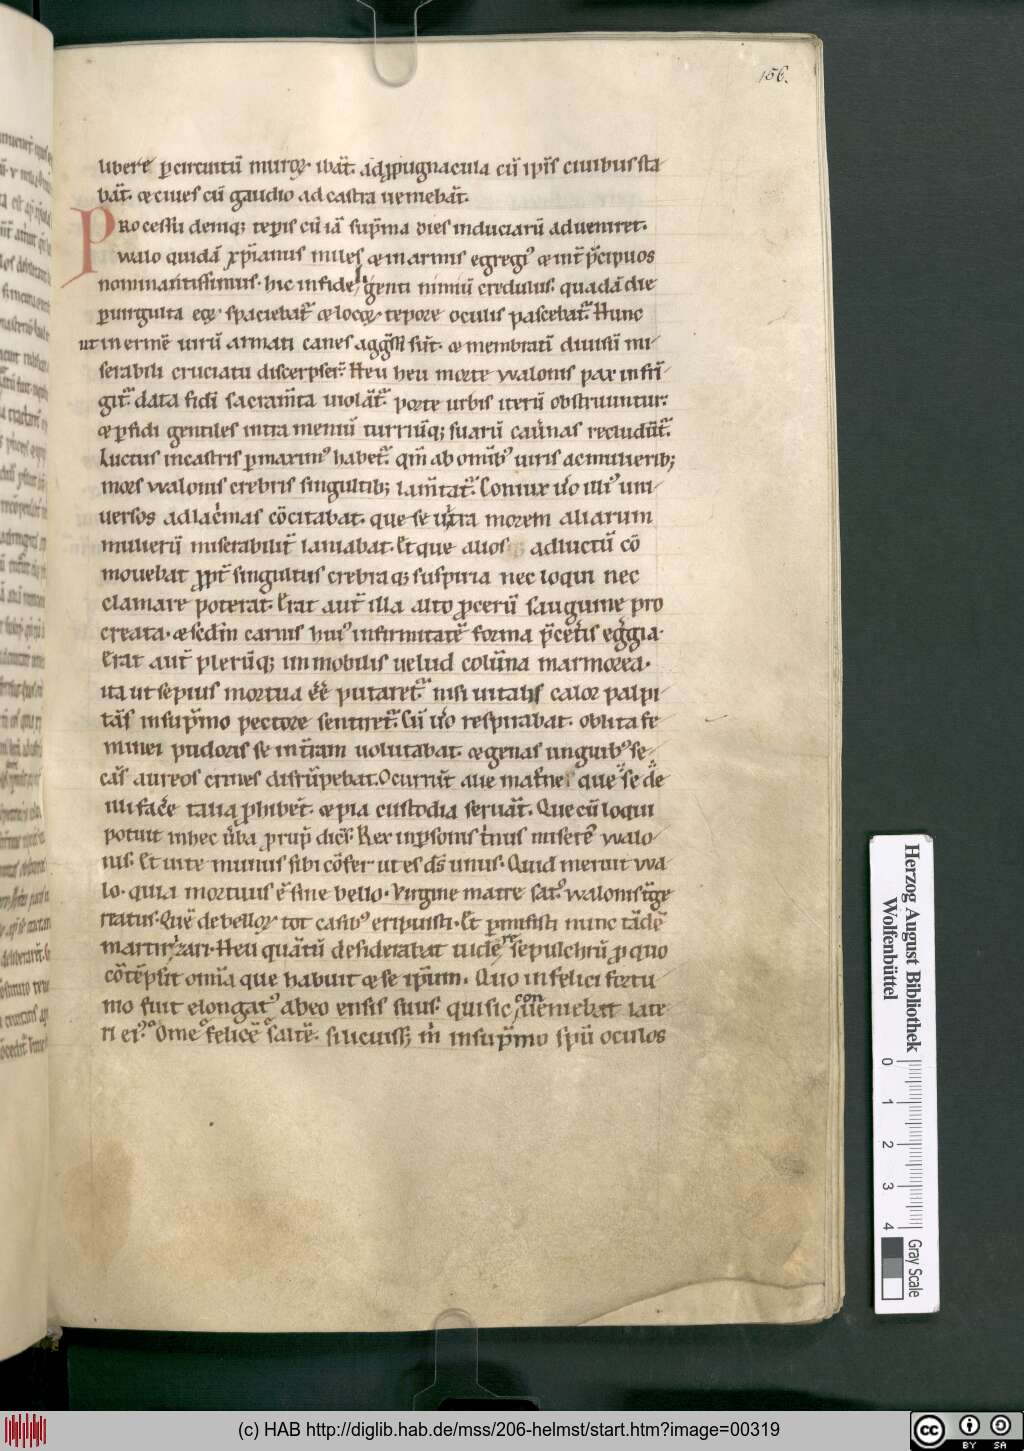 156.
libere p̱ circuitū muroꝝ ibāt. ad ꝓpugnacula cū ip̄is ciuibus sta
bāt. ⁊ ciues cū gaudio ad castra ueniebāt.
PRocessu deniqꝫ tēpis cū iā sup̄ma dies induciarū adueniret.
walo quidā xp̄ianus miles ⁊ in armis egregiꝰ ⁊ int̄ p̄cipuos
nominantissimus. hic infideli genti nimiū credulus. quadā die
ꝑ uirgulta eoꝝ spaciebat᷑ ⁊ locoꝝ tēpore oculis pascebat᷑. Hunc
ut inermē uirū armati canes agḡssi sūt. ⁊ membratī diuisū mi
serabili cruciatu discerpser̄. Heu heu morte walonis pax infrī
git᷑. data fidi sacram̄ta uiolāt᷑. porte urbis iterū obstruuntur.
⁊ ꝑfidi gentiles intra meniū turriūqꝫ suarū cau̾nas recludūt᷑.
Luctus in castris ꝑmaximꝰ habet᷑. qm̄ ab om̄ibꝰ uiris ac mulieribꝫ
mors walonis crebris singultibꝫ lam̄tat᷑. Coniux u̾o illiꝰ uni
uersos ad lac̾mas cōcitabat. que se ult̾a morem aliarum
mulierū miserabilit̄ laniabat. Et que alios ad luctū cō
mouebat ꝓpt̄ singultus crebraqꝫ suspiria nec loqui nec
clamare poterat. Erat aut̄ illa alto ꝓcerū saugume pro
creata. ⁊ sed̄m carnis huiꝰ infirmitatē forma p̄cet̾is eg̾gia.
Erat aut̄ plerūqꝫ immobilis uelud colūna marmorea.
ita ut sepius mortua ēē putaret᷑. nisi uitalis calor palpi
tās in sup̄mo pectore sentiret᷑. Cū u̾o respirabat. oblita fe
minei pudoris se in t̾ram uolutabat. ⁊ genas unguibꝰ se
cās aureos crines disrūpebat. Ocurrūt alie mat̾ne que se de
illi face talia ꝓhibēt. ⁊ pia custodia seruāt. Que cū loqui
potuit in hec u̾ba prup̄ dic̄s. Rex inpsonis t̾nus miserē walo
nis. Et uite munus sibi cōfer ut es ds̄ unus. Quid meruit wa
lo. quia mortuus ē sine bello. Virgine matre satꝰ walonis t̾ge
reatus. Quē de belloꝝ tot casibꝰ eripuisti. Et ꝑmisisti nunc tādē
martirizari. Heu quātū desiderabat tuū de sepulchrū ꝓ quo
cōtēpsit om̄ia que habuit ⁊ se ip̄um. Quo infelici fortu
nio fuit elongatꝰ ab eo ensis suus. qui sic con ueniebat late
ri eiꝰ. O me felicē saltē. si licuiss; m̄ in sup̄mo sp̄ū oculos
Herzog August Bibliothek
Wolfenbüttel
0 1 2 3 4
Gray Scale
(c) HAB http://diglib.hab.de/mss/206-helmst/start.htm?image=00319
cc BY SA